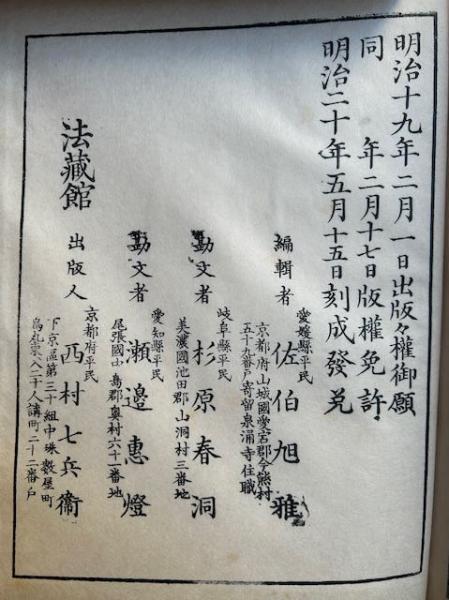 明治十九年二月一日出版々權御願
同　年二月十七日版權免許
明治二十年五月十五日刻成發兌
愛媛縣平民
編輯者　佐伯旭雅
京都府山城國愛宕郡今熊村
五十九番戸寄留泉涌寺住職
岐阜縣平民
勘文者　杉原春洞
美濃國池田郡山洞村三番地
愛知縣平民
勘文者　瀬邉惠燈
尾張國中島郡奥村六十一番地
京都府平民
法藏館　出版人　西村七兵衞
下京區第三十組中珠數屋町
烏丸東入二十人講町二十二番戸